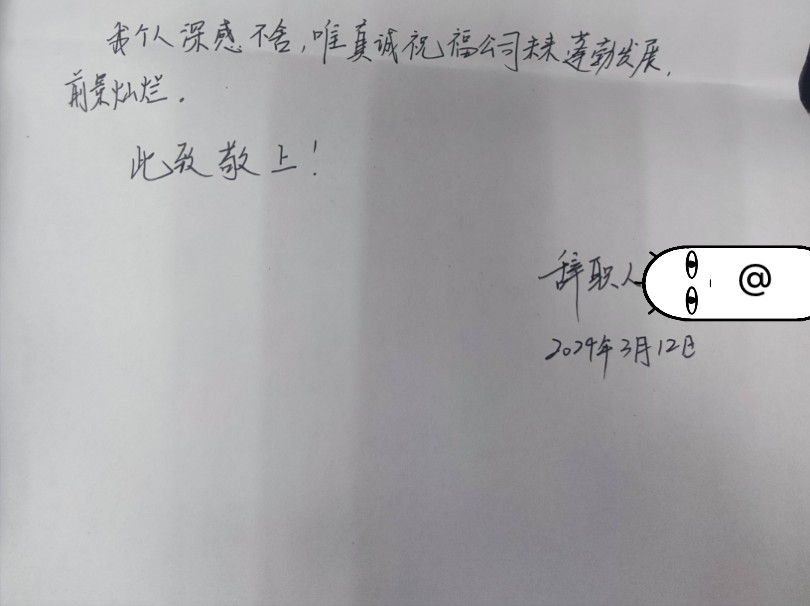 我个人深感不舍，唯真诚祝福公司未来蓬勃发展，
前景灿烂。
此致敬上！
辞职人
@
2024年3月12日